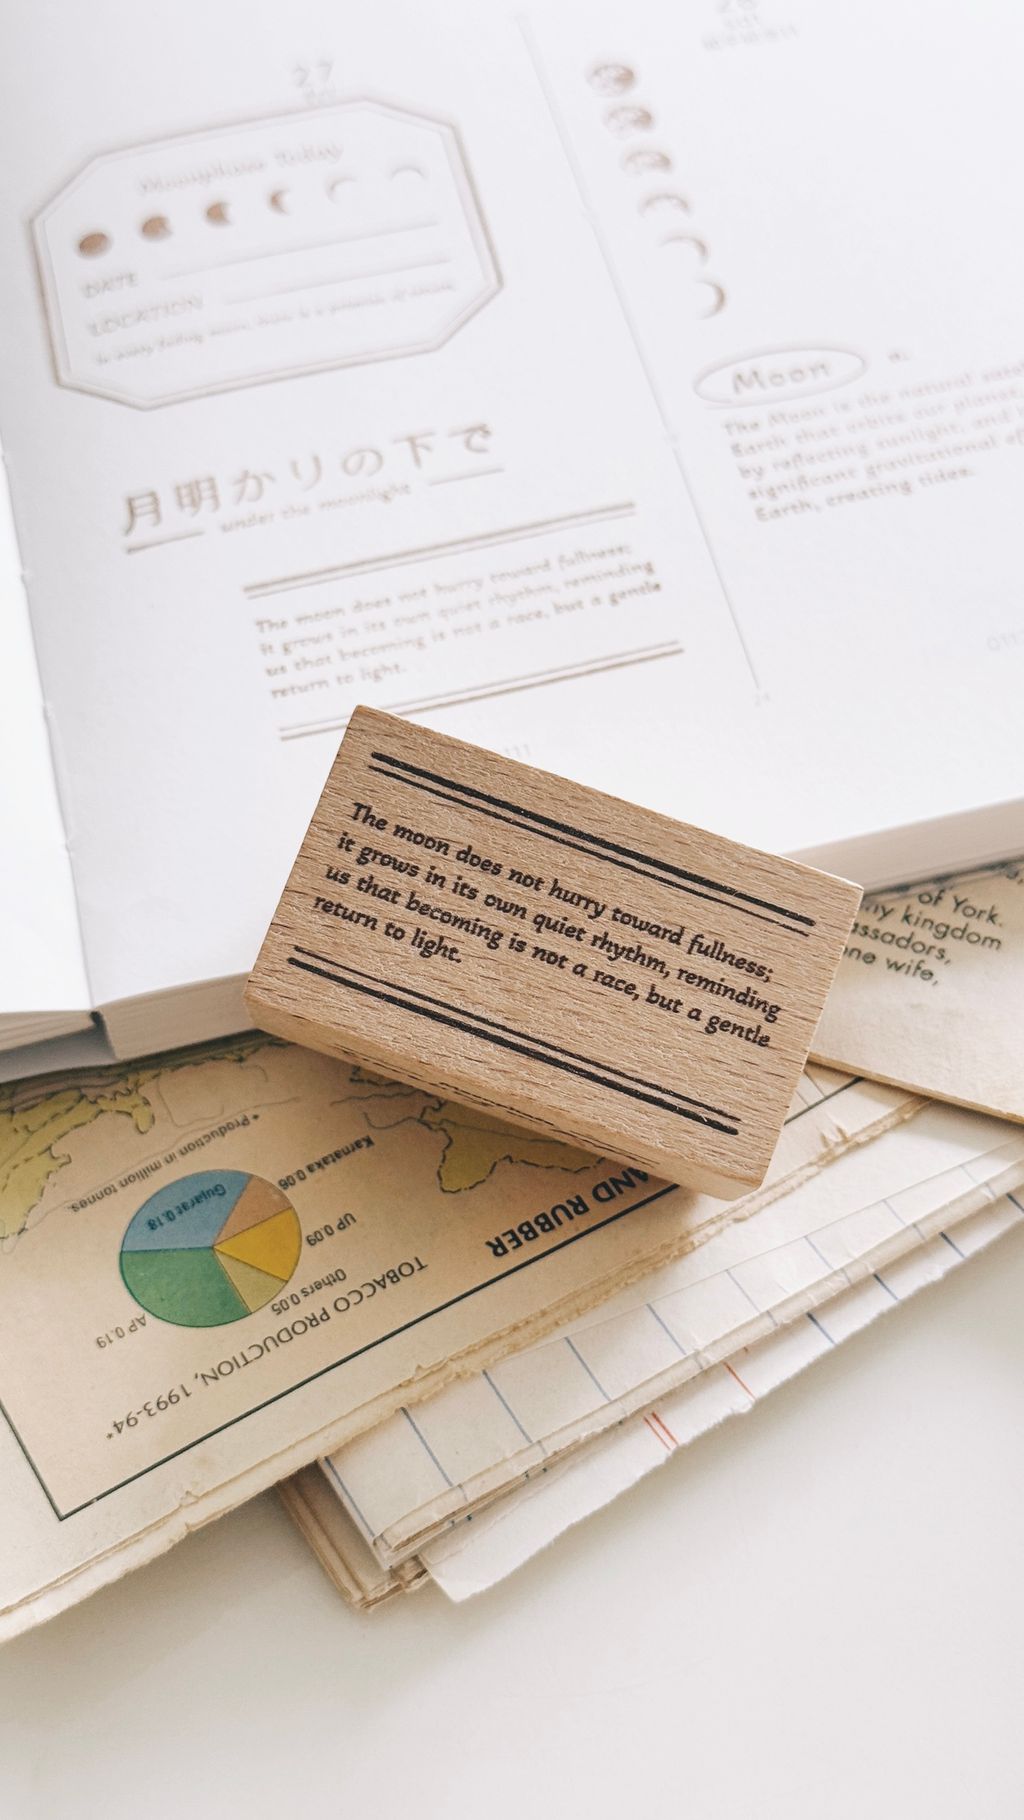 27
Moonphase Today
DATE
LOCATION
月明かりの下で
under the moonlight
The moon does not hurry toward fullness;
it grows in its own quiet rhythm, reminding
us that becoming is not a race, but a gentle
return to light.
Moon n.
The Moon is the natural
Earth that orbits our planet,
by reflecting sunlight, and
significant gravitational
Earth, creating tides.
The moon does not hurry toward fullness;
it grows in its own quiet rhythm, reminding
us that becoming is not a race, but a gentle
return to light.
of York.
my kingdom
wife,
AND RUBBER
TOBACCO PRODUCTION, 1993-94*
AP 0.19
Others 0.05
UP 0.09
Karnataka 0.06
Gujarat 0.18
*Production in million tonnes.